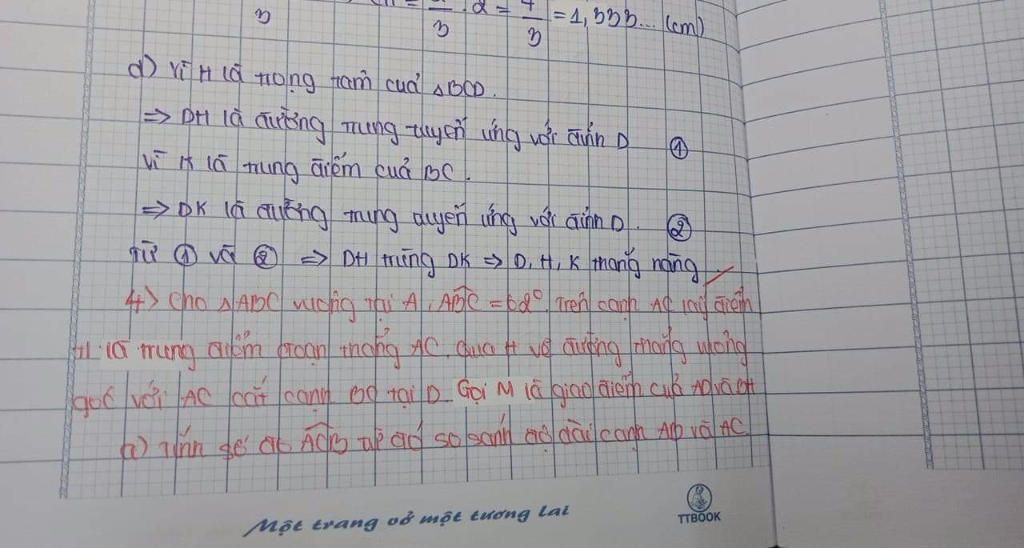 = 4/3 = 1,333... (cm)
3 3
d) Vì H là trọng tâm của △BCD.
⇒ DH là đường trung tuyến ứng với đỉnh D ①
Vì K là trung điểm của BC.
⇒ DK là đường trung tuyến ứng với đỉnh D. ②
Từ ① và ② ⇒ DH trùng DK ⇒ D, H, K thẳng hàng
4) Cho △ABC vuông tại A, ABC = 62°. Trên cạnh AC lấy điểm
H là trung điểm đoạn thẳng AC. Qua H vẽ đường thẳng vuông
góc với AC cắt cạnh BC tại D. Gọi M là giao điểm của và
a) Tính số đo ACB từ đó so sánh độ dài cạnh AB và AC
Một trang vở một tương lai
TTBOOK